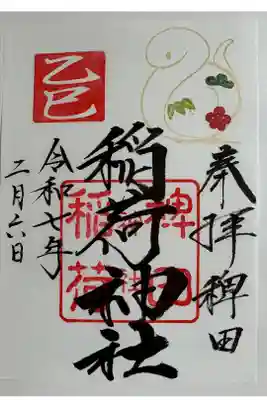 奉拝 稗田
稲荷神社
令和七年
二月六日
乙巳